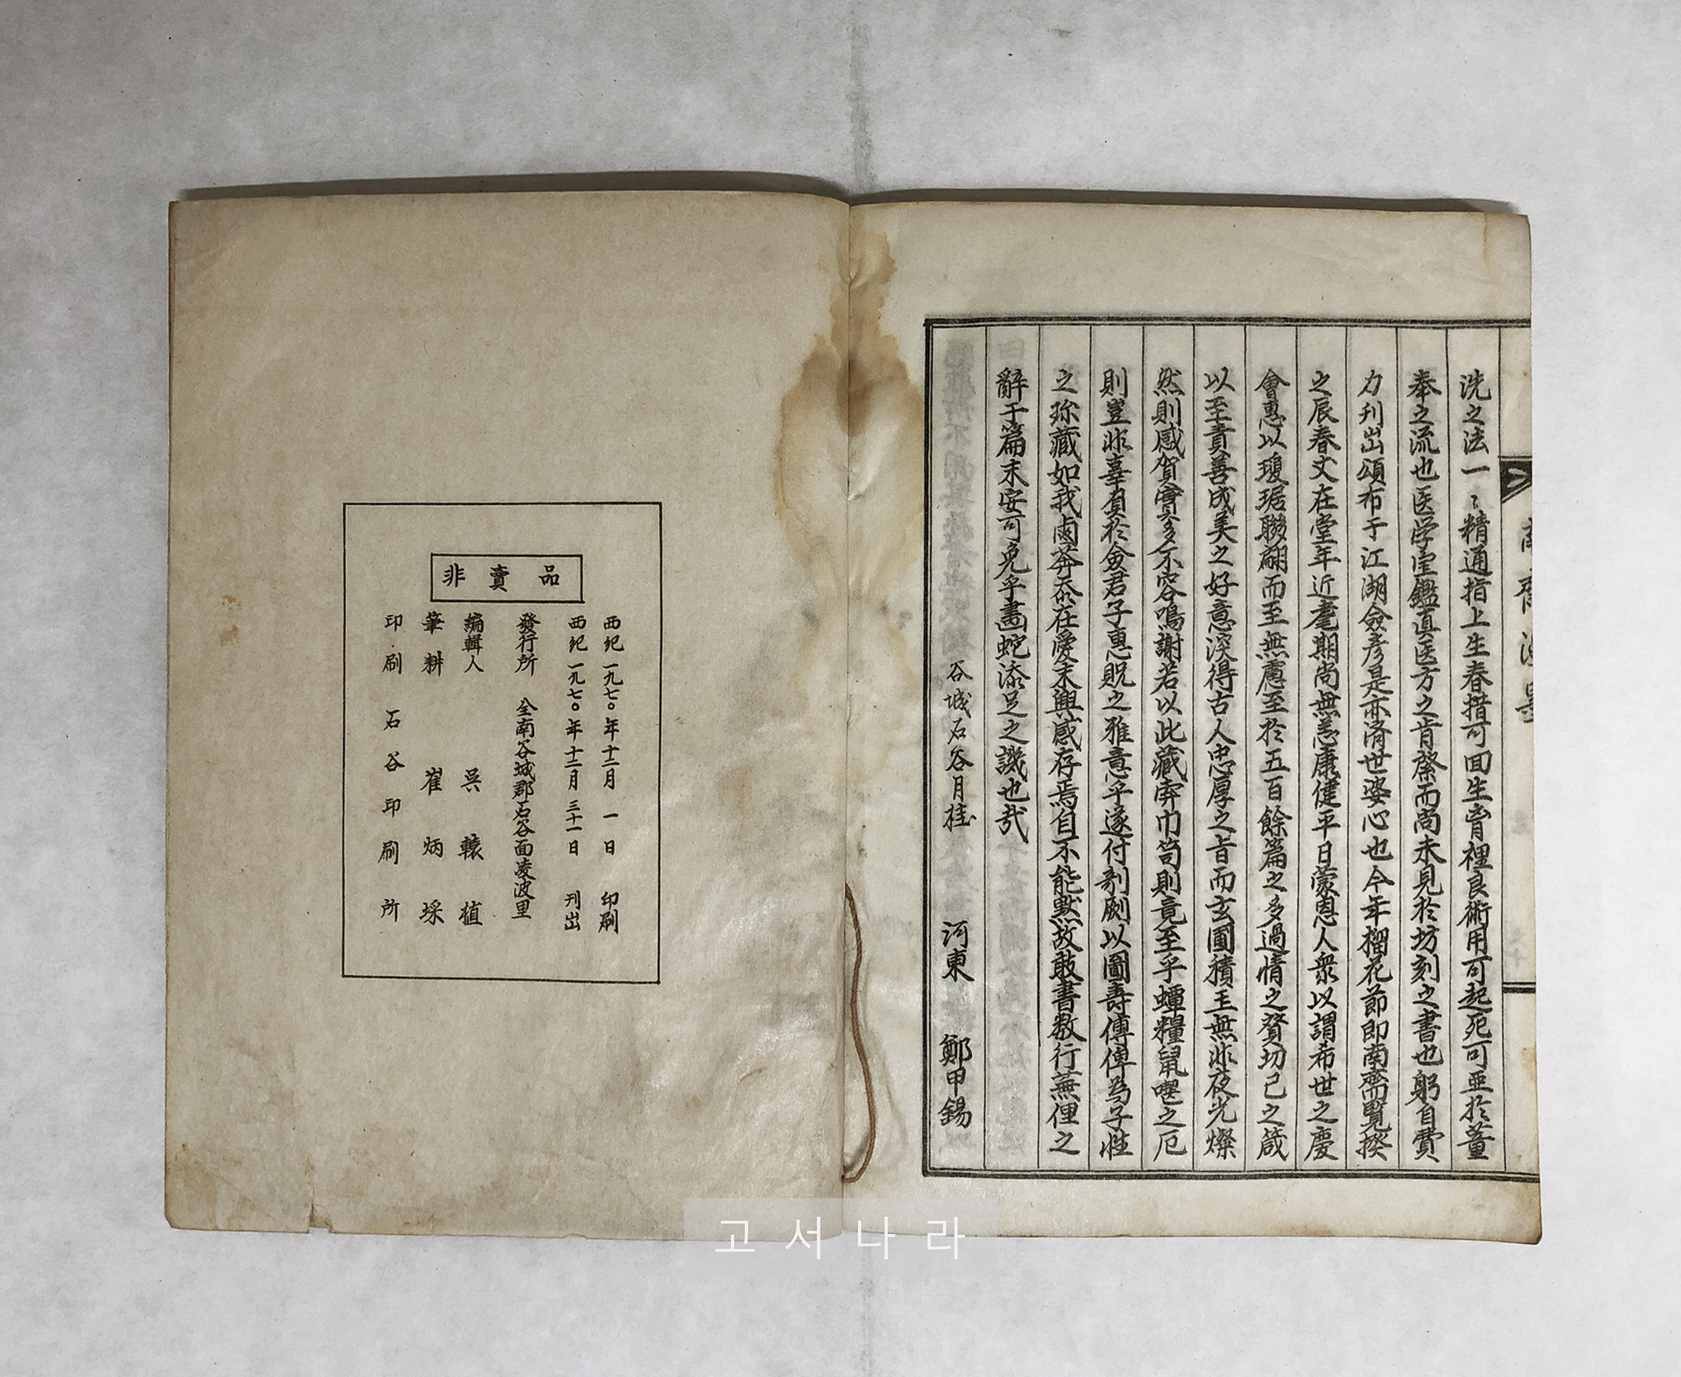 洗之法一〻精通指上生春措可回生育裡良術用可起死可亞於董
奉之流也医学宝鑑眞医方之肯綮而尚未見於坊刻之書也躬自費
力刊出頌布于江湖僉彦是亦済世婆心也今年榴花節即南齋覽揆
之辰春丈在堂年近耄期尚無恙康健平日蒙恩人衆以謂希世之慶
會惠以瓊琚聯翩而至無慮至於五百餘篇之多過情之贊切己之箴
以至責善成美之好意深得古人忠厚之旨而玄圃積玉無非夜光燦
然則感賀實多不容鳴謝若以此藏弆巾笥則竟至乎蟫糧鼠嚙之厄
則豈非辜負於僉君子惠貺之雅意乎遂付剞劂以圖壽傳俾為子姓
之珎藏如我鹵莽忝在愛末興感存焉自不能默故敢書数行蕪俚之
辭于篇末安可免乎畵蛇添足之譏也哉
谷城石谷月桂 河東 鄭甲錫
非賣品
西紀一九七〇年十二月 一日 印刷
西紀一九七〇年十二月三十一日 刊出
發行所 全南谷城郡石谷面凌波里
編輯人 吳轅植
筆耕 崔炳埰
印刷 石谷印刷所
고서나라